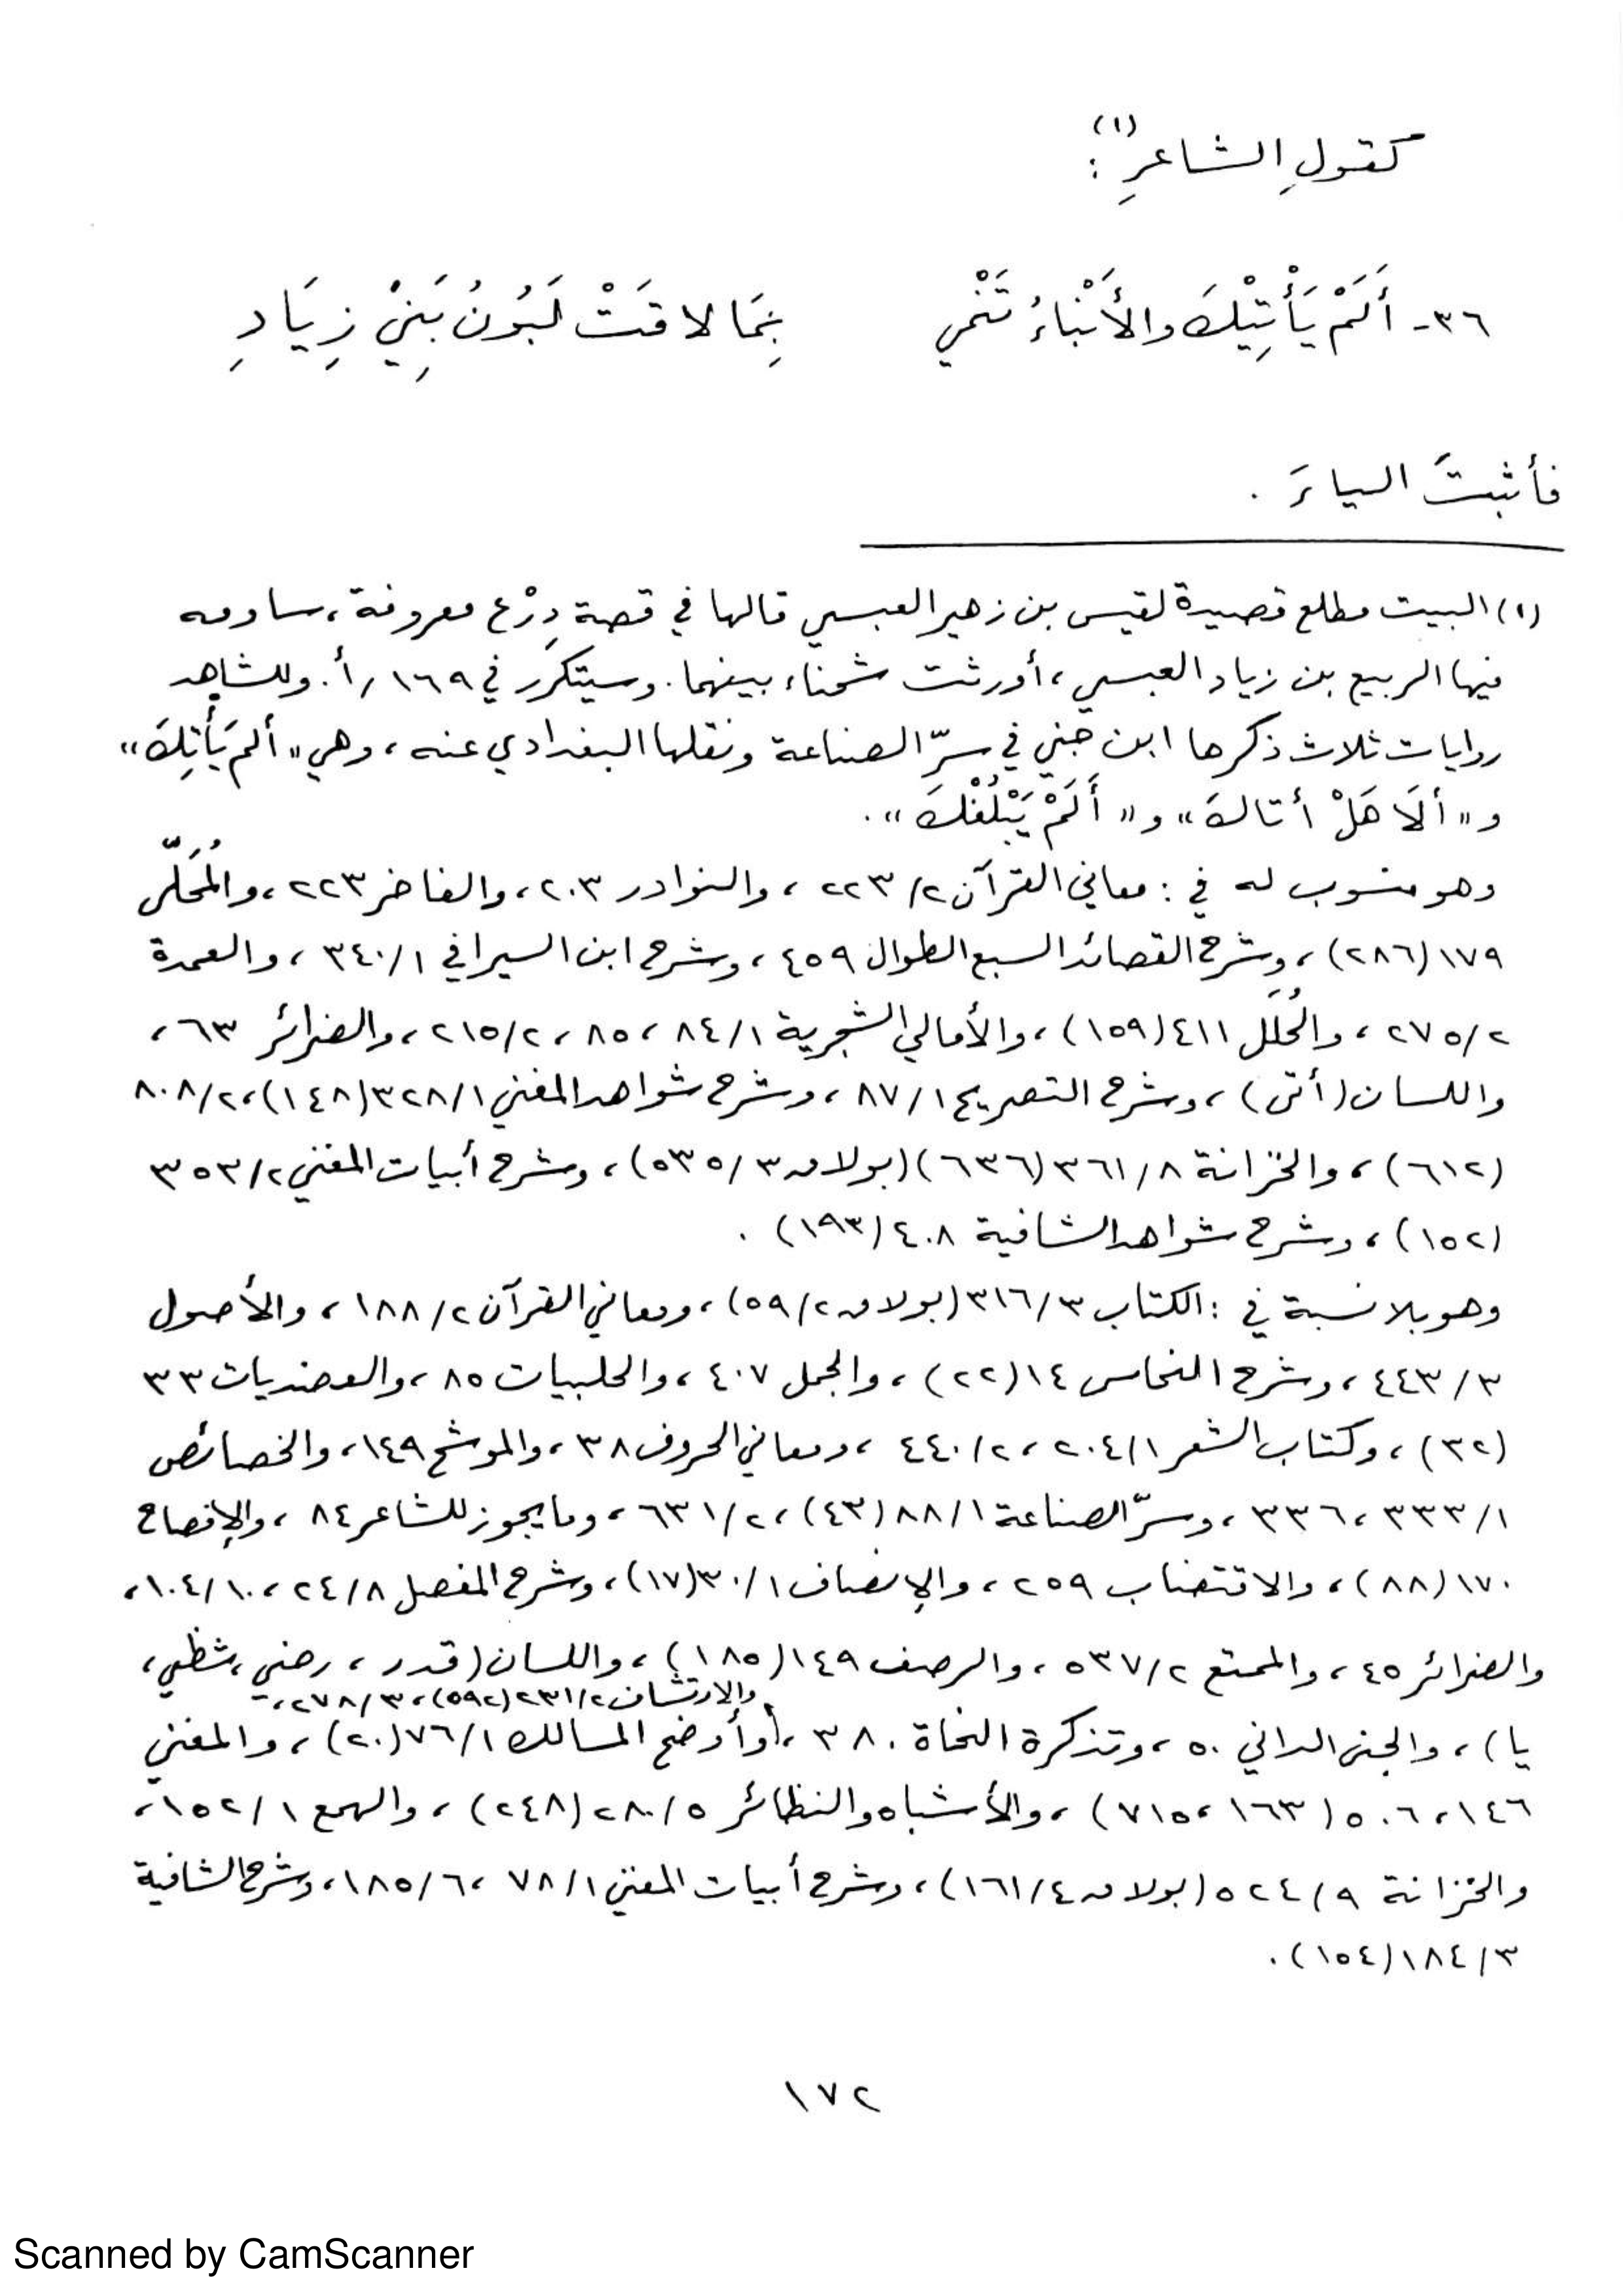 كقولِ الشاعرِ(١):
٣٦- أَلَمْ يَأْتِيْكَ والأَنْبَاءُ تَنْمي بِمَا لاقَتْ لَبُوْنُ بَنِيْ زِيَادِ
فأثبتَ الياءَ .
(١) البيت مطلع قصيدة لقيس بن زهير العبسي قالها في قصة دِرْع معروفة، ساومه
فيها الربيع بن زياد العبسي، أورثت شحناء بينهما. وسيتكرّر في ١٦٩/أ. وللشاهد
روايات ثلاث ذكرها ابن جني في سرّ الصناعة ونقلها البغدادي عنه، وهي «ألم يَأْتِكَ»
و«ألَا هَلْ أتاكَ» و«أَلَمْ يَبْلُغْكَ».
وهو منسوب له في: معاني القرآن ٢/٢٢٣، والنوادر ٢٠٣، والفاخر ٢٢٣، والمُحَلّى
١٧٩(٢٨٦)، وشرح القصائد السبع الطوال ٤٥٩، وشرح ابن السيرافي ١/٣٤٠، والعمدة
٢/٢٧٥، والحُلَل ٤١١(١٥٩)، والأمالي الشجرية ١/٨٤، ٨٥، ٢/٢١٥، والضرائر ٦٣،
واللسان (أتى)، وشرح التصريح ١/٨٧، وشرح شواهد المغني ١/٣٢٨(١٤٨)، ٢/٨٠٨
(٦١٢)، والخزانة ٨/٣٦١(٦٣٦)(بولاق ٣/٥٣٥)، وشرح أبيات المغني ٢/٣٥٣
(١٥٢)، وشرح شواهد الشافية ٤٠٨(١٩٣).
وهو بلا نسبة في: الكتاب ٣/٣١٦(بولاق ٢/٥٩)، ومعاني القرآن ٢/١٨٨، والأصول
٣/٤٤٣، وشرح النحاس ١٤(٢٢)، والجمل ٤٠٧، والحلبيات ٨٥، والعضديات ٣٣
(٣٢)، وكتاب الشعر ١/٢٠٤، ٢/٤٤٠، ومعاني الحروف ٣٨، والموشح ١٤٩، والخصائص
١/٣٣٣، ٣٣٦، وسرّ الصناعة ١/٨٨(٤٣)، ٢/٦٣١، وما يجوز للشاعر ٨٤، والإفصاح
١٧٠(٨٨)، والاقتضاب ٢٥٩، والإنصاف ١/٣٠(١٧)، وشرح المفصل ٨/٢٤، ١٠/١٠٤،
والضرائر ٤٥، والممتع ٢/٥٣٧، والرصف ١٤٩(١٨٥)، واللسان (قدر، رضي، شظي،
والارتشاف ٢/٢٣١(٥٩٢)، ٣/٢٧٨،
يا)، والجنى الداني ٥٠، وتذكرة النحاة ٣٨٠، وأوضح المسالك ١/٧٦(٢٠)، والمغني
١٤٦، ٥٠٦(١٦٣، ٧١٥)، والأشباه والنظائر ٥/٢٨٠(٢٤٨)، والهمع ١/١٥٢،
والخزانة ٩/٥٢٤(بولاق ٤/١٦١)، وشرح أبيات المغني ١/٧٨، ٦/١٨٥، وشرح الشافية
٣/١٨٤(١٥٤).
١٧٢
Scanned by CamScanner